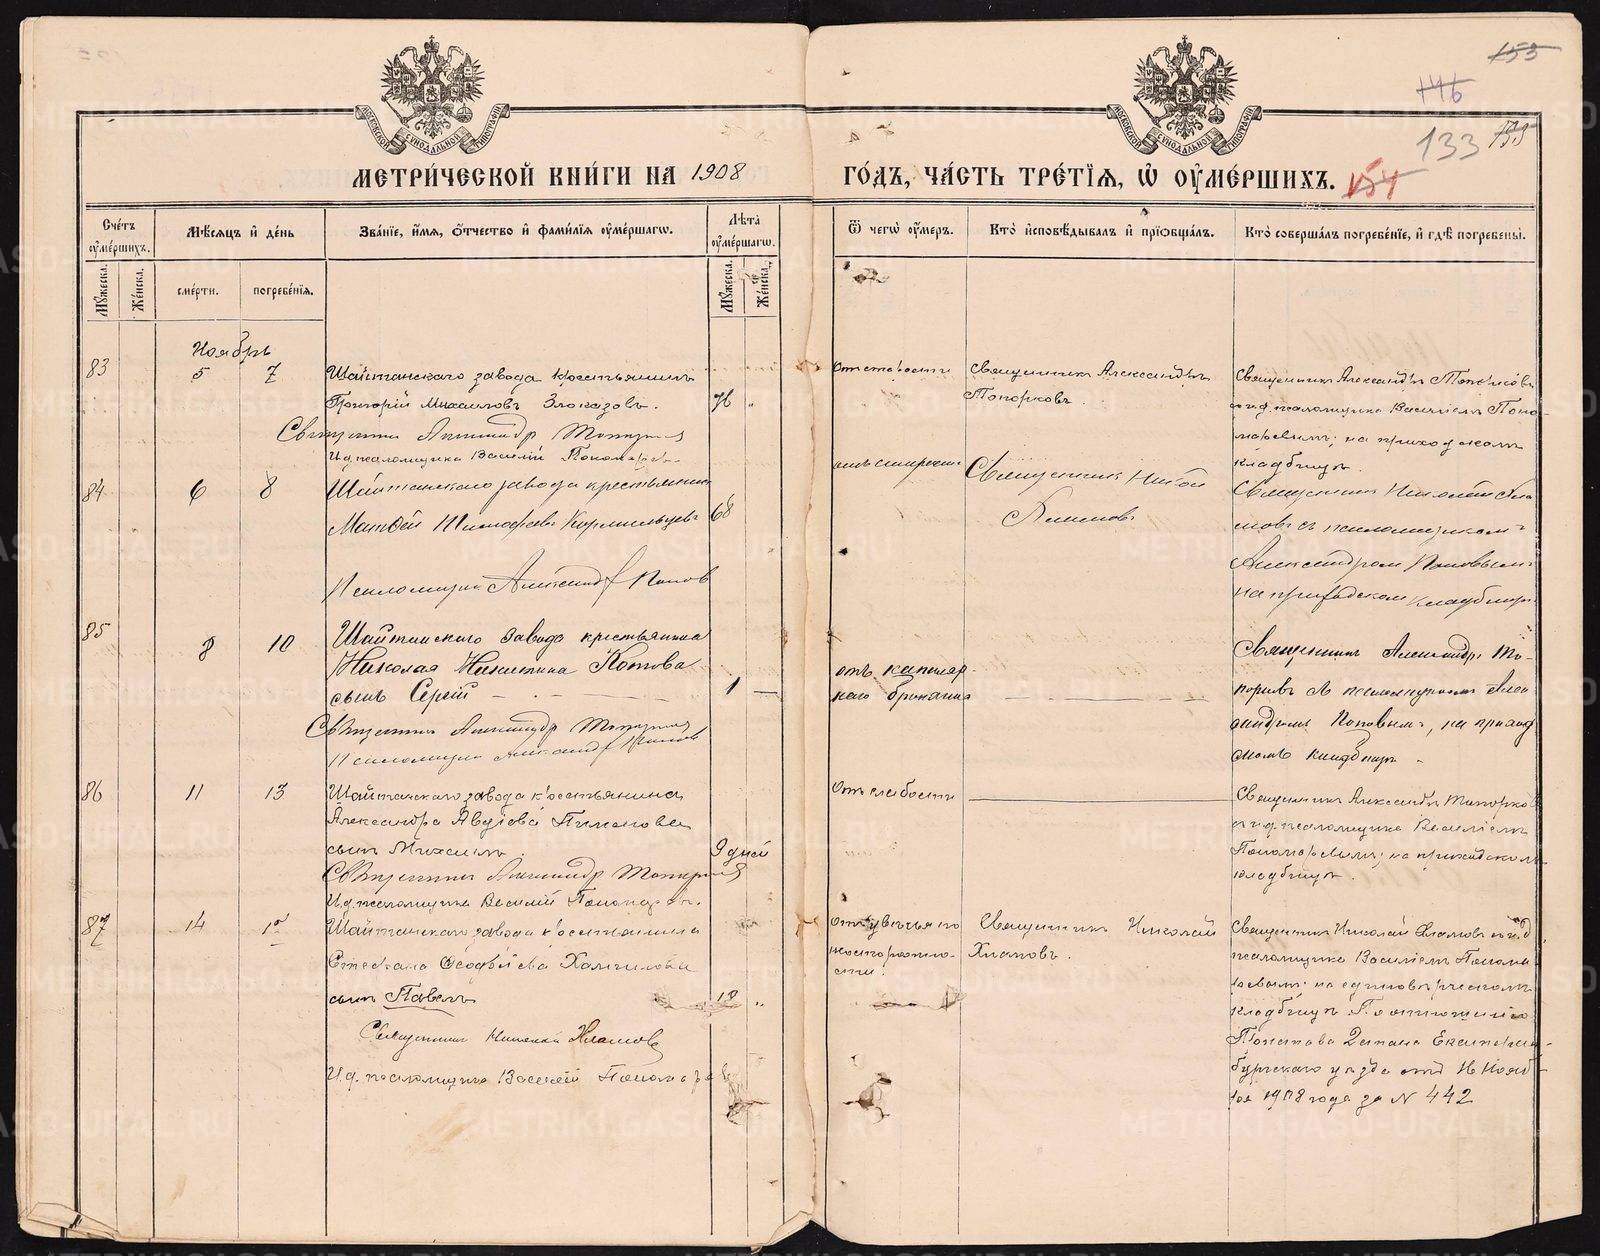 153
146
133
МЕТРИ́ЧЕСКОЙ КНИ́ГИ НА 1908 ГО́ДЪ, ЧА́СТЬ ТРЕ́ТІѦ, Ѡ҆ ОУ҆МЕ́РШИХЪ.
154
Сче́тъ оу҆ме́ршихъ.
Мѣ́сѧцъ и҆ де́нь
Зва́нїе, и҆́мѧ, ѻ҆́тчество и҆ фами́лїѧ оу҆ме́ршагѡ.
Лѣ́та оу҆ме́ршагѡ.
Ѿ чегѡ̀ оу҆́меръ.
Кто̀ и҆сповѣ́дывалъ и҆ прїѡбща́лъ.
Кто̀ соверша́лъ погребе́нїе, и҆ гдѣ̀ погребены̀.
Мꙋ́жеска.
Же́нска.
сме́рти.
погребе́нїѧ.
Мꙋ́жеска.
Же́нска.
Ноябрь
83 5 7 Шайтанскаго завода крестьянинъ
Григорій Михаиловъ Злоказовъ. 76 "
Священникъ Александръ Топорковъ
И.д. псаломщика Василій Пономаревъ.
От старости
Священникъ Александръ
Топорковъ.
Священникъ Александръ Топорковъ
и и.д. псаломщика Василіемъ Поно-
маревымъ; на приходскомъ
кладбищѣ.
84 6 8 Шайтанскаго завода крестьянинъ
Матѳей Тимофеевъ Кормильцевъ 68
Псаломщикъ Александръ Попов
отъ старости
Священникъ Николай
Хламовъ
Священникъ Николай Хла
мовъ съ псаломщикомъ
Александром Поповымъ
на приходском кладбищѣ
85 8 10 Шайтанского завода крестьянина
Николая Никитина Котова
сынъ Сергій 1
Священникъ Александръ Топорковъ
Псаломщикъ Александръ Попов
отъ катарар-
наго бронхита
Священникъ Александръ То-
порковъ съ псаломщикомъ Алек
сандромъ Поповымъ, на приход
скомъ кладбищѣ.
86 11 13 Шайтанскаго завода крестьянина
Александра Авдіева Пименова
сынъ Михаилъ. 9 дней
Священникъ Александръ Топорковъ
И.д. псаломщика Василій Пономаревъ.
От слабости
Священникъ Александръ Топорков
и и.д. псаломщика Василіемъ
Пономаревымъ; на приходскомъ
кладбищѣ.
87 14 15 Шайтанскаго завода крестьянина
Стефана Ѳеофьева
сынъ Павелъ "
Священникъ Николай Хламовъ
И.д. псаломщика Василій Пономарев
От увѣчья по
неосторожно-
сти.
Священникъ Николай
Хламовъ.
Священникъ Николай Хламовъ и и.д.
псаломщика Василіемъ Понома
ревымъ; на единовѣрческомъ
кладбищѣ. По отношенію
Пристава 2 стана Екатерин-
бургскаго уѣзда отъ 14 Нояб-
ря 1908 года за № 442